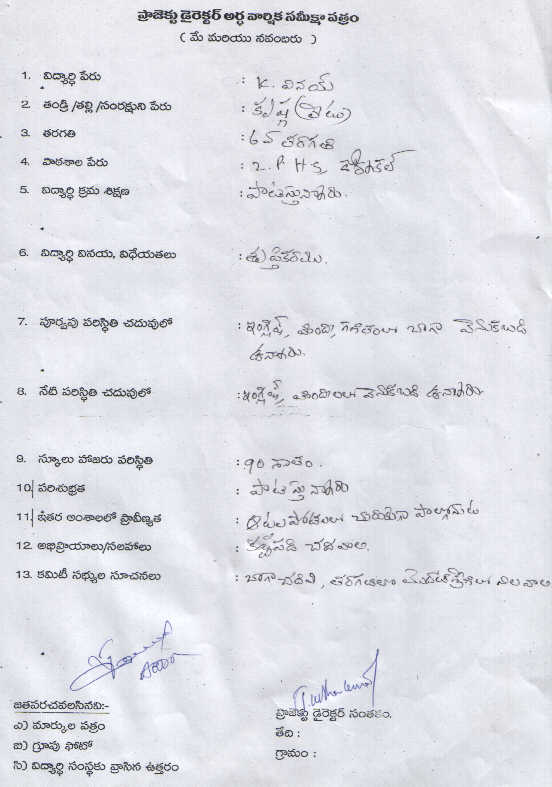 ప్రాజెక్టు డైరెక్టర్ అర్ధ వార్షిక సమీక్షా పత్రం
( మే మరియు నవంబరు )
1. విద్యార్థి పేరు : K. వినయ్
2. తండ్రి /తల్లి /సంరక్షుని పేరు : కృష్ణ
3. తరగతి : 6వ తరగతి
4. పాఠశాల పేరు : Z. P H S,
5. విద్యార్థి క్రమ శిక్షణ : పాటిస్తున్నాడు.
6. విద్యార్థి వినయ, విధేయతలు : తృప్తికరము.
7. పూర్వపు పరిస్థితి చదువులో : ఇంగ్లీష్, హింది, గణితంలో బాగా వెనుకబడి
ఉన్నాడు.
8. నేటి పరిస్థితి చదువులో : ఇంగ్లీష్, హిందిలలో వెనుకబడి ఉన్నాడు
9. స్కూలు హాజరు పరిస్థితి : 90 శాతం.
10. పరిశుభ్రత : పాటిస్తున్నాడు
11. ఇతర అంశాలలో ప్రావీణ్యత : ఆటల పోటీలలో చురుకుగా పాల్గొంటాడు
12. అభిప్రాయాలు/సలహాలు : కష్టపడి చదవాలి.
13. కమిటీ సభ్యుల సూచనలు : బాగా చదివి, తరగతిలో మొదటి శ్రేణిలో నిలవాలి
జతపరచవలసినవి:-
ఎ) మార్కుల పత్రం
బి) గ్రూపు ఫోటో
సి) విద్యార్థి సంస్థకు వ్రాసిన ఉత్తరం
ప్రాజెక్టు డైరెక్టర్ సంతకం.
తేది :
గ్రామం :